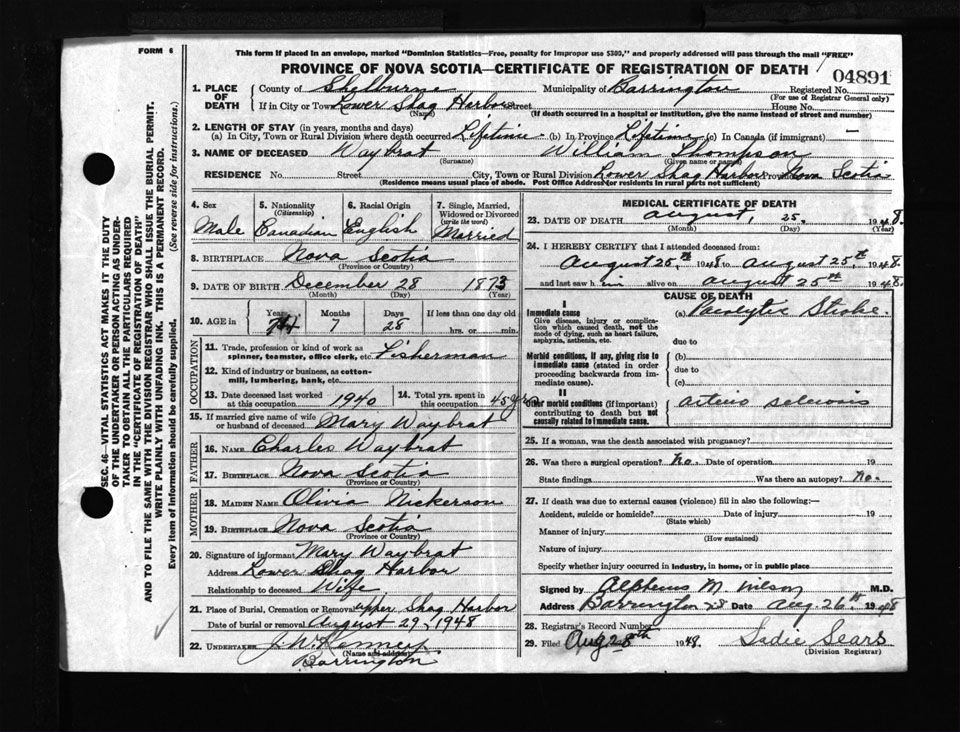 FORM 6
This form if placed in an envelope, marked "Dominion Statistics—Free, penalty for improper use $300," and properly addressed will pass through the mail "FREE"
PROVINCE OF NOVA SCOTIA—CERTIFICATE OF REGISTRATION OF DEATH
04891
1. PLACE OF DEATH
County of Shelburne Municipality of Barrington Registered No.
(For use of Registrar General only)
If in City or Town Lower Shag Harbor Street House No.
(Name) (If death occurred in a hospital or institution, give the name instead of street and number)
2. LENGTH OF STAY (in years, months and days)
(a) In City, Town or Rural Division where death occurred Lifetime (b) In Province Lifetime (c) In Canada (if immigrant) —
3. NAME OF DECEASED Waybrat William Thompson
(Surname) (Given name or names)
RESIDENCE No. Street City, Town or Rural Division Lower Shag Harbor Province Nova Scotia
(Residence means usual place of abode. Post Office Address for residents in rural parts not sufficient)
4. Sex
Male
5. Nationality
(Citizenship)
Canadian
6. Racial Origin
English
7. Single, Married, Widowed or Divorced
(write the word)
Married
8. BIRTHPLACE Nova Scotia
(Province or Country)
9. DATE OF BIRTH December 28 1873
(Month) (Day) (Year)
10. AGE in
Years Months Days If less than one day old
74 7 28 hrs. or min.
OCCUPATION
11. Trade, profession or kind of work as spinner, teamster, office clerk, etc. Fisherman
12. Kind of industry or business, as cotton-mill, lumbering, bank, etc.
13. Date deceased last worked at this occupation 1940
14. Total yrs. spent in this occupation 45 yrs
15. If married give name of wife or husband of deceased Mary Waybrat
FATHER
16. Name Charles Waybrat
17. Birthplace Nova Scotia
(Province or Country)
MOTHER
18. Maiden Name Olivia Nickerson
19. Birthplace Nova Scotia
(Province or Country)
20. Signature of informant Mary Waybrat
Address Lower Shag Harbor
Relationship to deceased Wife
21. Place of Burial, Cremation or Removal upper Shag Harbor
Date of burial or removal August 29, 1948
22. UNDERTAKER J. W.
(Name and address)
Barrington
MEDICAL CERTIFICATE OF DEATH
23. DATE OF DEATH August, 25. 1948.
(Month) (Day) (Year)
24. I HEREBY CERTIFY that I attended deceased from:
August 25th 1948 to August 25th 1948
and last saw him alive on August 25th 1948.
CAUSE OF DEATH
I
Immediate cause
Give disease, injury or complication which caused death, not the mode of dying, such as heart failure, asphyxia, asthenia, etc.
(a) Paralytic Stroke.
due to
Morbid conditions, if any, giving rise to immediate cause (stated in order proceeding backwards from immediate cause).
(b)
due to
(c)
II
Other morbid conditions (if important) contributing to death but not causally related to immediate cause.
arterio sclerosis
25. If a woman, was the death associated with pregnancy?
26. Was there a surgical operation? No. Date of operation 19
State findings Was there an autopsy? No.
27. If death was due to external causes (violence) fill in also the following:—
Accident, suicide or homicide? Date of injury 19
(State which)
Manner of injury
(How sustained)
Nature of injury
Specify whether injury occurred in industry, in home, or in public place
Signed by Alpheus M. Wilson M.D.
Address Barrington NS Date Aug. 26th 1948
28. Registrar's Record Number
29. Filed Aug 28th 1948. Sadie Sears
(Division Registrar)
SEC. 46—VITAL STATISTICS ACT MAKES IT THE DUTY
OF THE UNDERTAKER OR PERSON ACTING AS UNDERTAKER TO OBTAIN ALL THE PARTICULARS REQUIRED
IN THE "CERTIFICATE OF REGISTRATION OF DEATH"
AND TO FILE THE SAME WITH THE DIVISION REGISTRAR WHO SHALL ISSUE THE BURIAL PERMIT.
WRITE PLAINLY WITH UNFADING INK. THIS IS A PERMANENT RECORD.
Every item of information should be carefully supplied. (See reverse side for instructions.)